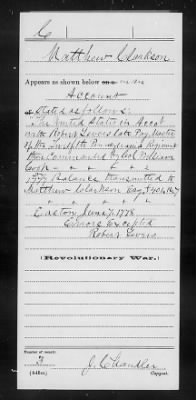 C
Matthew Clarkson
Appears as shown below on
Account
Stated as follows:
The United States in Accot
with Robert Levers late Pay Master
of the Twelfth Pennsylvania Regiment
then Commanded by Col. William
Cook " " " "
1777 Balance transmitted to
Matthew Clarkson Esq.
" " " " "
Easton June 7, 1778.
Errors Excepted
Robert Levers.
(Revolutionary War.)
Number of record:
J. Chandler
Copyist.